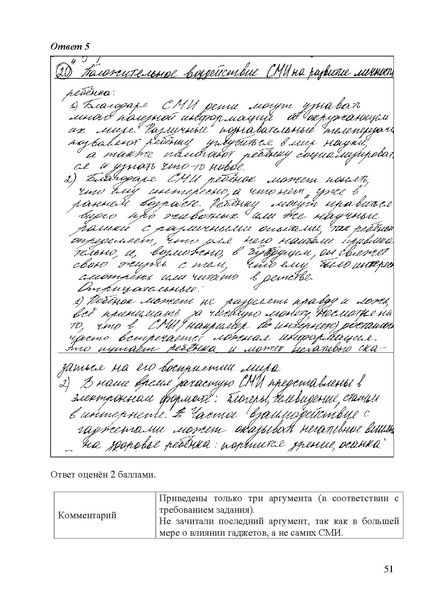 Ответ 5
20) Положительное воздействие СМИ на развитие личности
ребёнка:
1) Благодаря СМИ дети могут узнавать
много полезной информации об окружающем
их мире. Различные познавательные телепередачи
позволяют ребёнку углубиться в мир науки,
а также помогают ребёнку социализироват-
ся и узнать что-то новое.
2) Благодаря СМИ ребёнок может понять,
что ему интересно, а что нет, уже в
раннем возрасте. Ребёнку могут нравиться
видео про животных или же научные
ролики с различными опытами, так ребёнок
определяет, что для него наиболее привлека
тельно, и, возможно, в будущем, он свяжет
свою жизнь с тем, что ему было интересно
смотреть или читать в детстве.
Отрицательные:
1) Ребёнок может не разделять правду и ложь,
всё принимать за чистую монету. Несмотря на
то, что в СМИ, например во интернет, достаточно
часто встречается ложная информация.
Это путает ребёнка и может негативно ска-
заться на его восприятии мира
2) В наше время зачастую СМИ представлены в
электронном формате: блогеры, телевидение, статьи
в интернете. Частое взаимодействие с
гаджетами может оказывать негативное влияние
на здоровье ребёнка: портится зрение, осанка
Ответ оценён 2 баллами.
Комментарий
Приведены только три аргумента (в соответствии с
требованием задания).
Не зачитали последний аргумент, так как в большей
мере о влиянии гаджетов, а не самих СМИ.
51